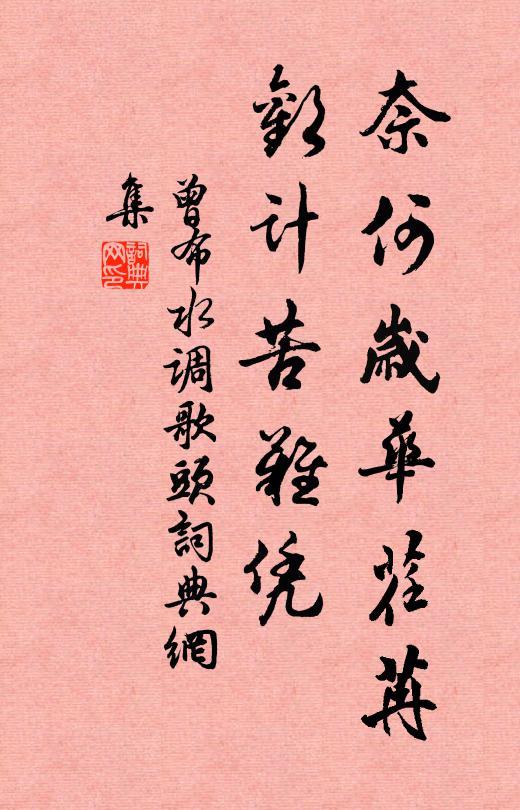 奈何歲華荏苒
歡計苦難凭
曾布水调歌頭詞典網
集
詞典
网印